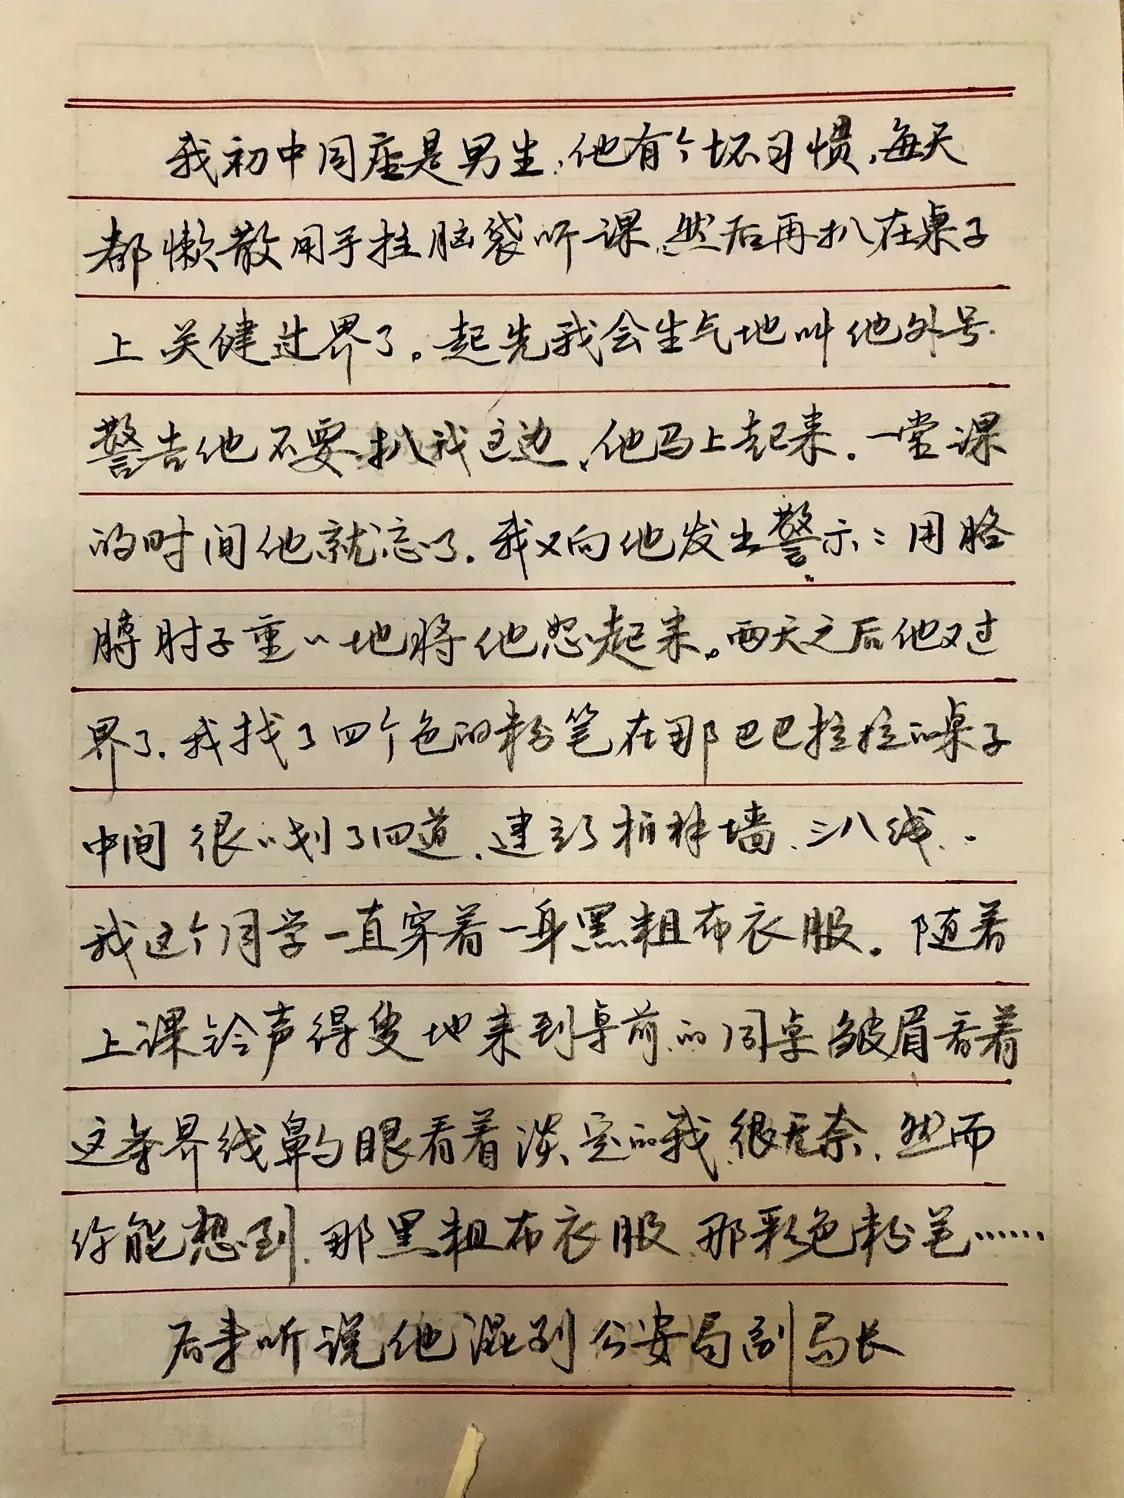 我初中同座是男生，他有个坏习惯，每天
都懒散用手拄脑袋听课，然后再扒在桌子
上关健过界了。起先我会生气地叫他外号.
警告他不要扒我这边、他马上起来．一堂课
的时间他就忘了．我又向他发出警示：用胳
膊肘子重〃地将他怼起来。两天之后他又过
界了．我找了四个色的粉笔在那巴巴拉拉的桌子
中间狠〃划了四道，建立了柏林墙、三八线．．
我这个同学一直穿着一身黑粗布衣服。随着
上课铃声得叟地来到桌前的同桌皱眉看着
这条界线鼻的眼看着淡定的我很无奈．然而
你能想到，那黑粗布衣服、那彩色粉笔……
后来听说他混到公安局副局长